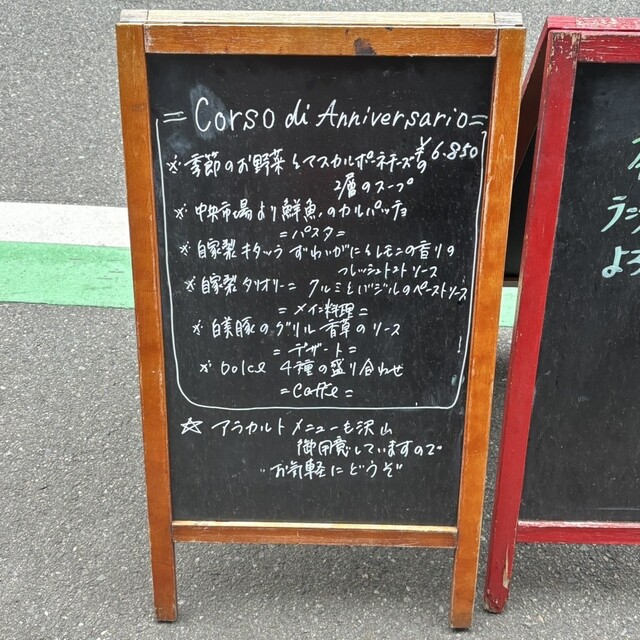 = Corso di Anniversario =
¥6.850
※ 季節のお野菜とマスカルポーネチーズの
2層のスープ
※ 中央市場より鮮魚のカルパッチョ
= パスタ =
※ 自家製キタッラ ずわいがにとレモンの香りの
フレッシュトマトソース
※ 自家製タリオリーニ クルミとバジルのペーストソース
= メイン料理 =
※ 白美豚のグリル 香草のソース
= デザート =
※ Dolce 4種の盛り合わせ
= Caffe =
☆ アラカルトメニューも沢山
御用意していますので
お気軽にどうぞ
ラン
よろ